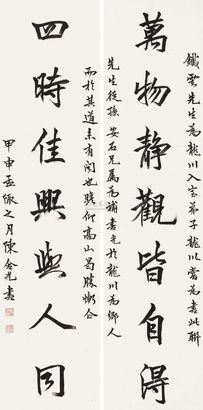 萬物靜觀皆自得
鐵雲先生為龍川入室弟子龍川嘗為書此聯
先生從孫安石兄屬為補書光於龍川為鄉人
四時佳興與人同
而於其道未有聞也晚仰高山曷勝慚仄
甲申孟陬之月陳含光書